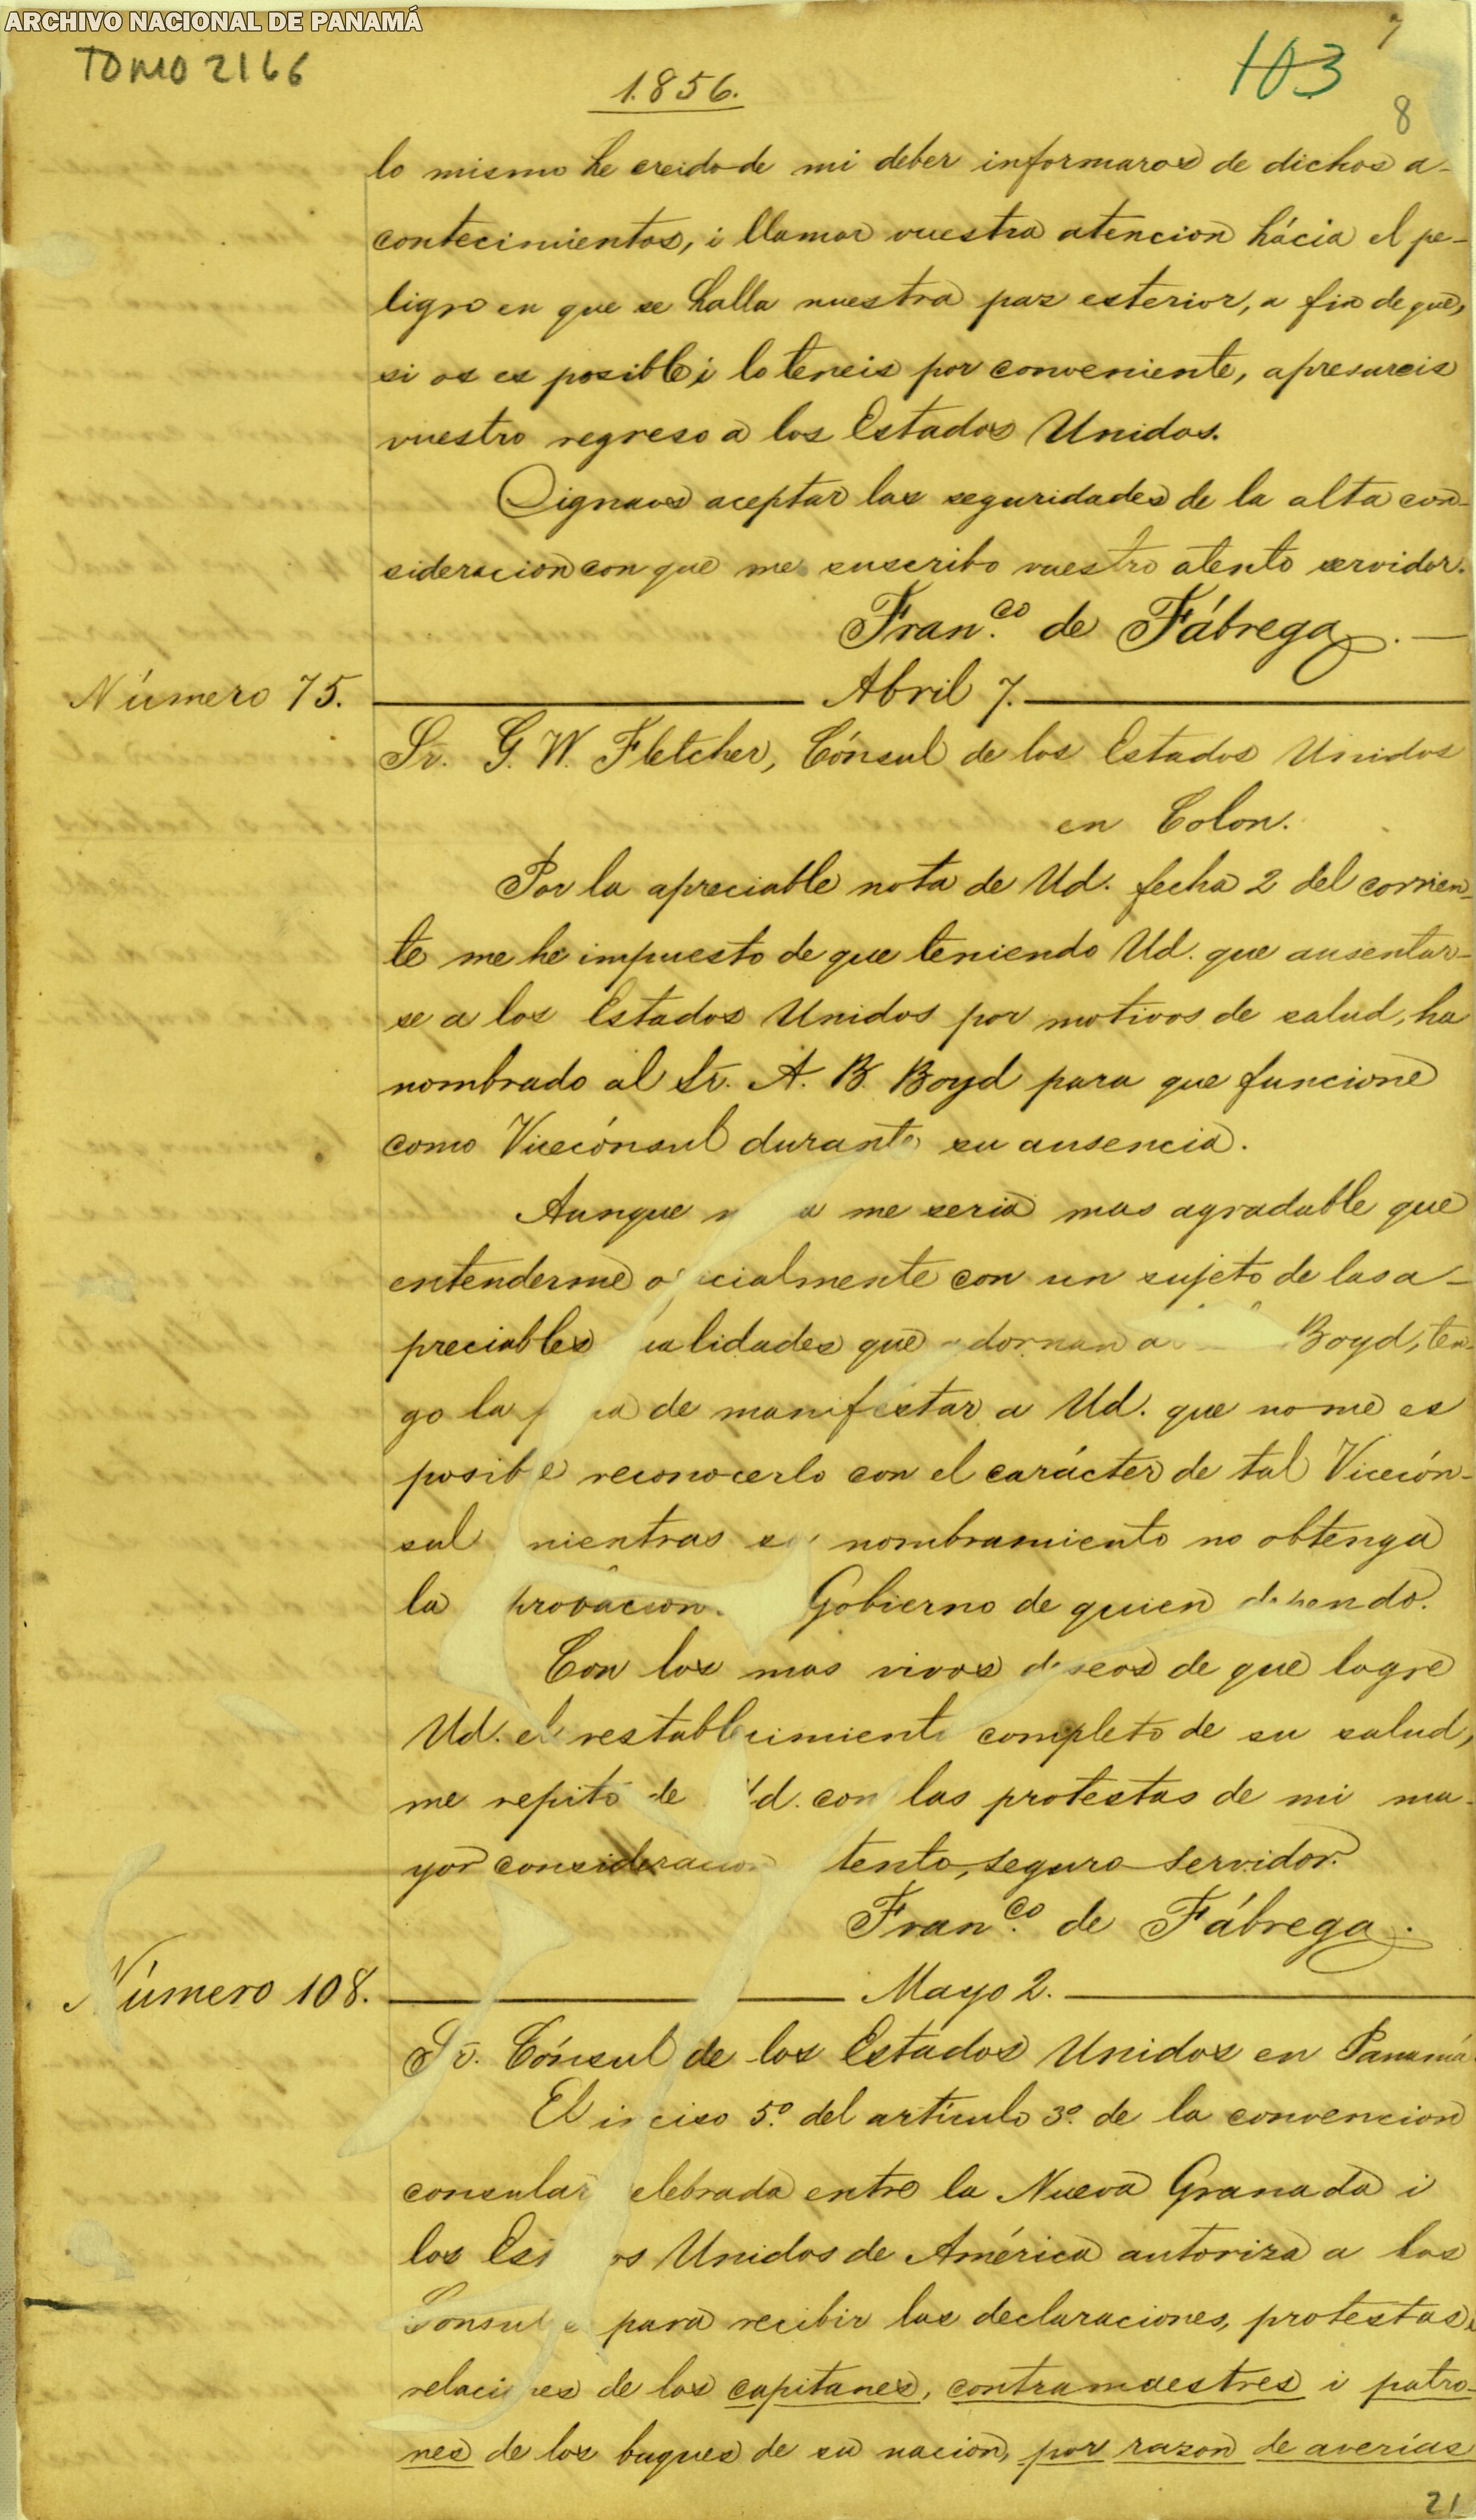 ARCHIVO NACIONAL DE PANAMÁ
TOMO 2166
1.856.
103
7
8
lo mismo he creido de mi deber informaros de dichos a-
contecimientos, i llamar vuestra atencion hácia el pe-
ligro en que se halla nuestra paz esterior, a fin de que,
si os es posible i lo teneis por conveniente, apresureis
vuestro regreso a los Estados Unidos.
Dignaos aceptar las seguridades de la alta con-
sideracion con que me suscribo vuestro atento servidor.
Fran.co de Fábrega.
Número 75.
Abril 7.
Sr. G. W. Fletcher, Cónsul de los Estados Unidos
en Colon.
Por la apreciable nota de Ud. fecha 2 del corrien-
te me he impuesto de que teniendo Ud. que ausentar-
se a los Estados Unidos por motivos de salud, ha
nombrado al Sr. A. B. Boyd para que funcione
como Vicecónsul durante su ausencia.
Aunque me seria mas agradable que
entenderme oficialmente con un sujeto de las a-
preciables ualidades que adornan a Boyd, ten-
go la de manifestar a Ud. que no me es
posible reconocerlo con el carácter de tal Vicecón-
sul mientras su nombramiento no obtenga
la probacion Gobierno de quien dependo.
Con los mas vivos deseos de que logre
Ud. el restablecimiento completo de su salud,
me repito de Ud. con las protestas de mi ma-
yor consideracion tento, seguro servidor.
Fran.co de Fábrega.
Número 108.
Mayo 2.
Sr. Cónsul de los Estados Unidos en Panamá
El inciso 5.º del artículo 3.º de la convencion
consular elebrada entre la Nueva Granada i
los Estados Unidos de América autoriza a los
Consules para recibir las declaraciones, protestas i
relaciones de los capitanes, contramaestres i patro-
nes de los buques de su nacion, por razon de averías
21